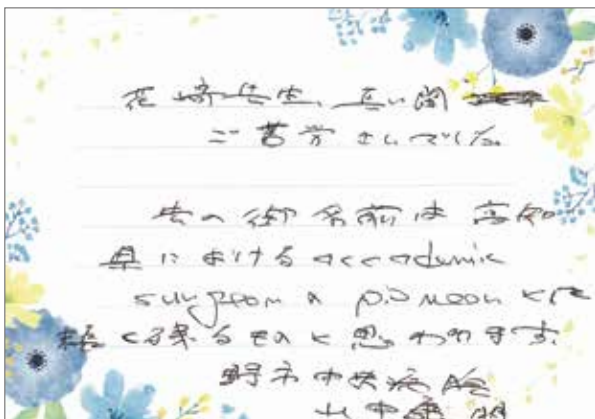 花崎先生、長い間
ご苦労さまでした。
先生の御名前は高知
県における accademic
surgeon の pioneer として
長く残るものと思われます。
野市中央病院